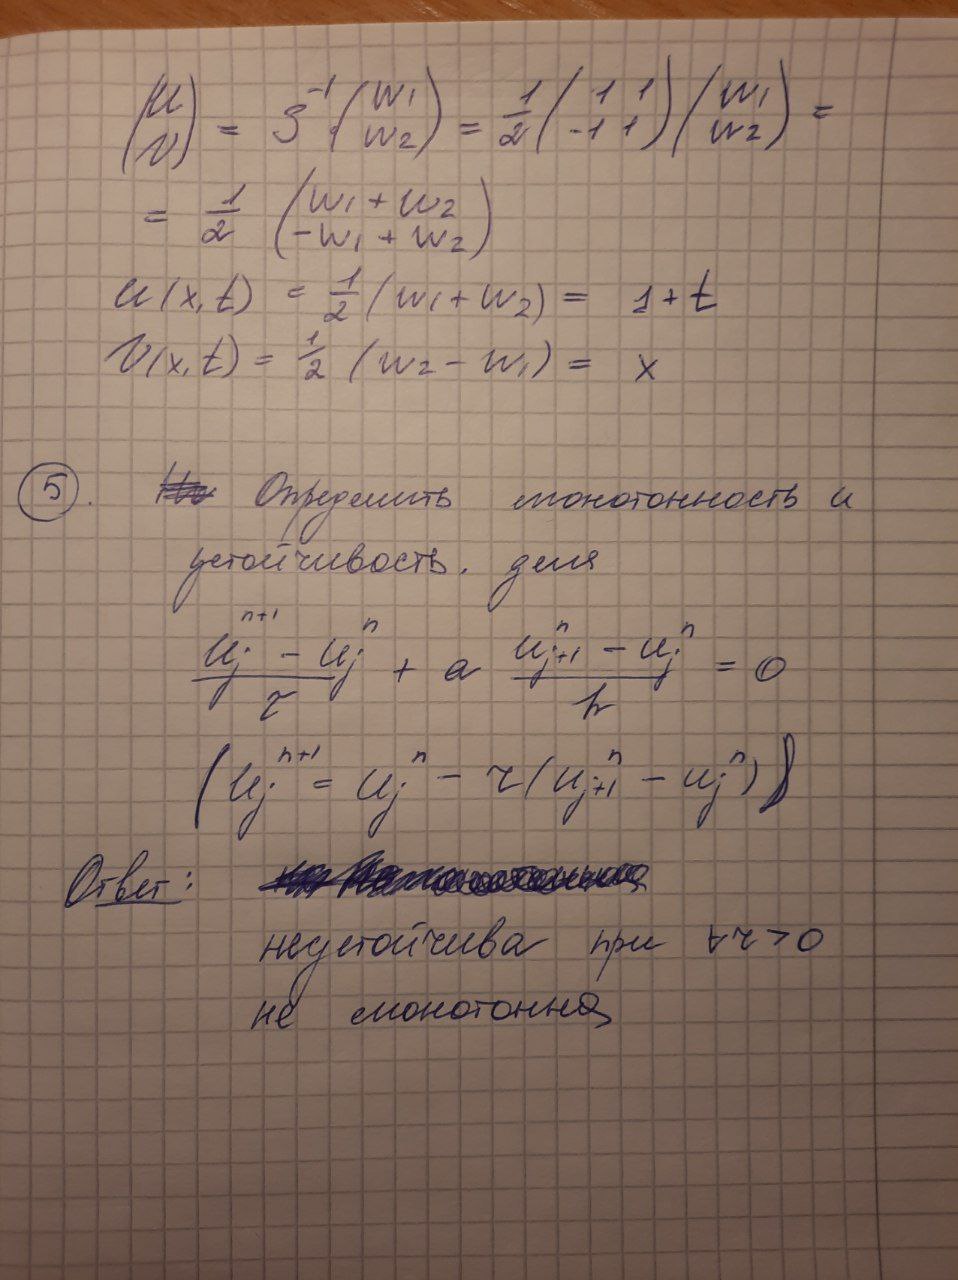 (u v) = S⁻¹ · (w₁ w₂) = 1/2 (1 1 -1 1) (w₁ w₂) =
= 1/2 (w₁ + w₂ -w₁ + w₂)
u(x,t) = 1/2 (w₁ + w₂) = 1 + t
v(x,t) = 1/2 (w₂ - w₁) = x
5. Определить монотонность и
устойчивость. для
(uⱼⁿ⁺¹ - uⱼⁿ)/τ + a (uⱼ₊₁ⁿ - uⱼⁿ)/h = 0
(uⱼⁿ⁺¹ = uⱼⁿ - r(uⱼ₊₁ⁿ - uⱼⁿ))
Ответ:
неустойчива при ∀r > 0
не монотонна